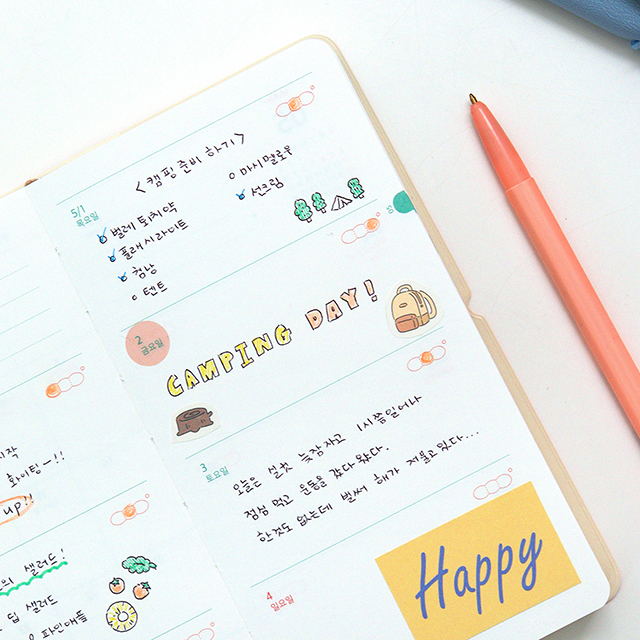 시작
화이팅~!!
up!
의 샐러드!
딥 샐러드
파인애플
5/1
목요일
<캠핑 준비 하기>
벌레 퇴치약
플래시라이트
침낭
텐트
마시멜로우
선크림
2
금요일
CAMPING DAY!
3
토요일
오늘은 실컷 늦잠자고 1시쯤일어나
점심 먹고 운동을 갔다 왔다.
한것도 없는데 벌써 해가 저물고 있다...
4
일요일
Happy